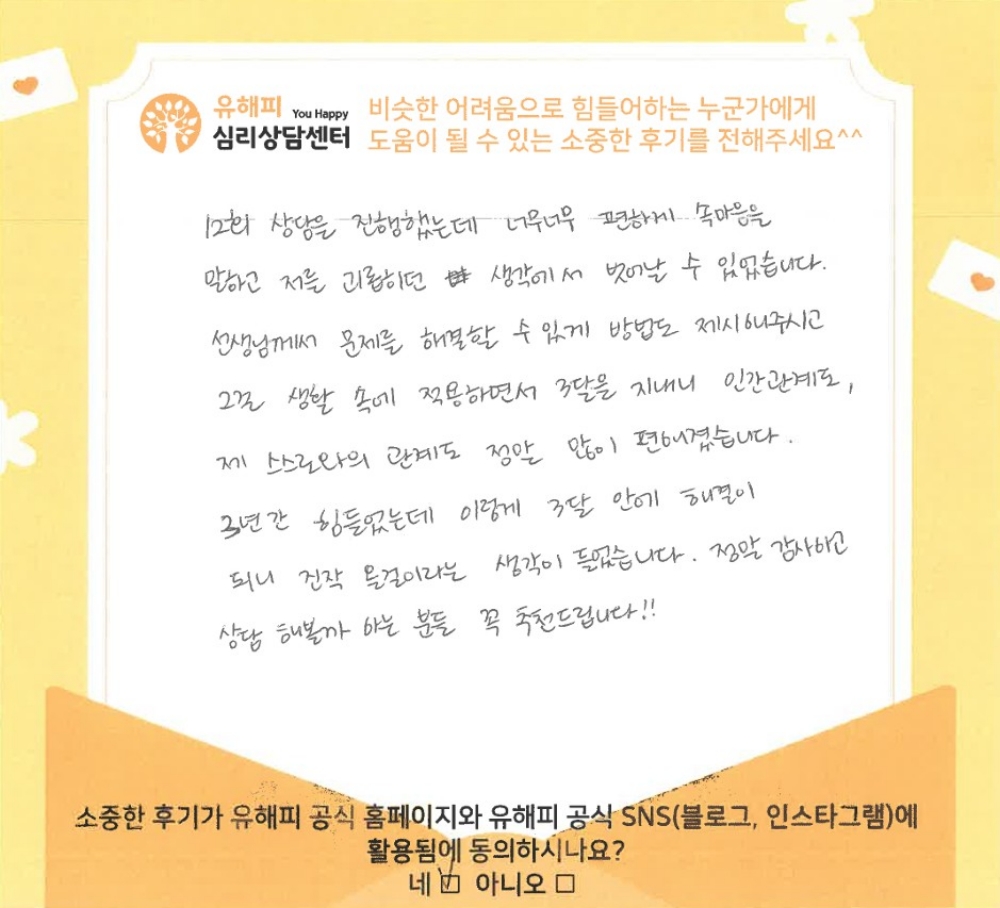 유해피 You Happy
심리상담센터
비슷한 어려움으로 힘들어하는 누군가에게
도움이 될 수 있는 소중한 후기를 전해주세요^^
12회 상담을 진행했는데 너무너무 편하게 속마음을
말하고 저를 괴롭히던 생각에서 벗어날 수 있었습니다.
선생님께서 문제를 해결할 수 있게 방법도 제시해주시고
그걸 생활 속에 적용하면서 3달을 지내니 인간관계도,
제 스스로와의 관계도 정말 많이 편해졌습니다.
3년간 힘들었는데 이렇게 3달 안에 해결이
되니 진작 올걸이라는 생각이 들었습니다. 정말 감사하고
상담 해볼까 하는 분들 꼭 추천드립니다!!
소중한 후기가 유해피 공식 홈페이지와 유해피 공식 SNS(블로그, 인스타그램)에
활용됨에 동의하시나요?
네 ☑ 아니오 ☐